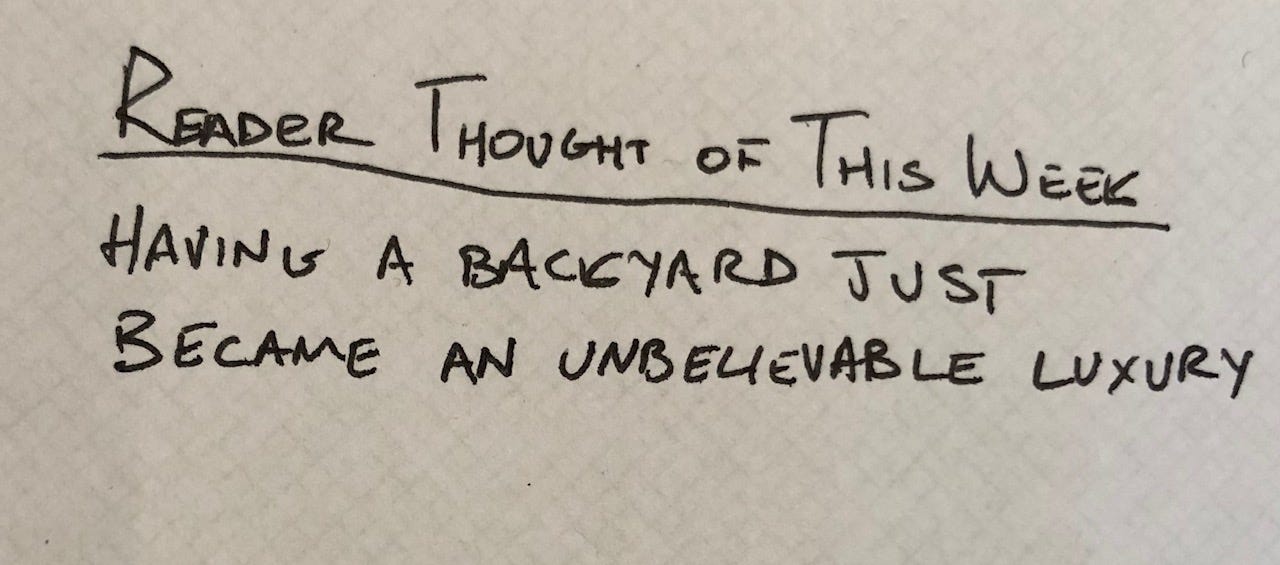 READER THOUGHT OF THIS WEEK
HAVING A BACKYARD JUST
BECAME AN UNBELIEVABLE LUXURY